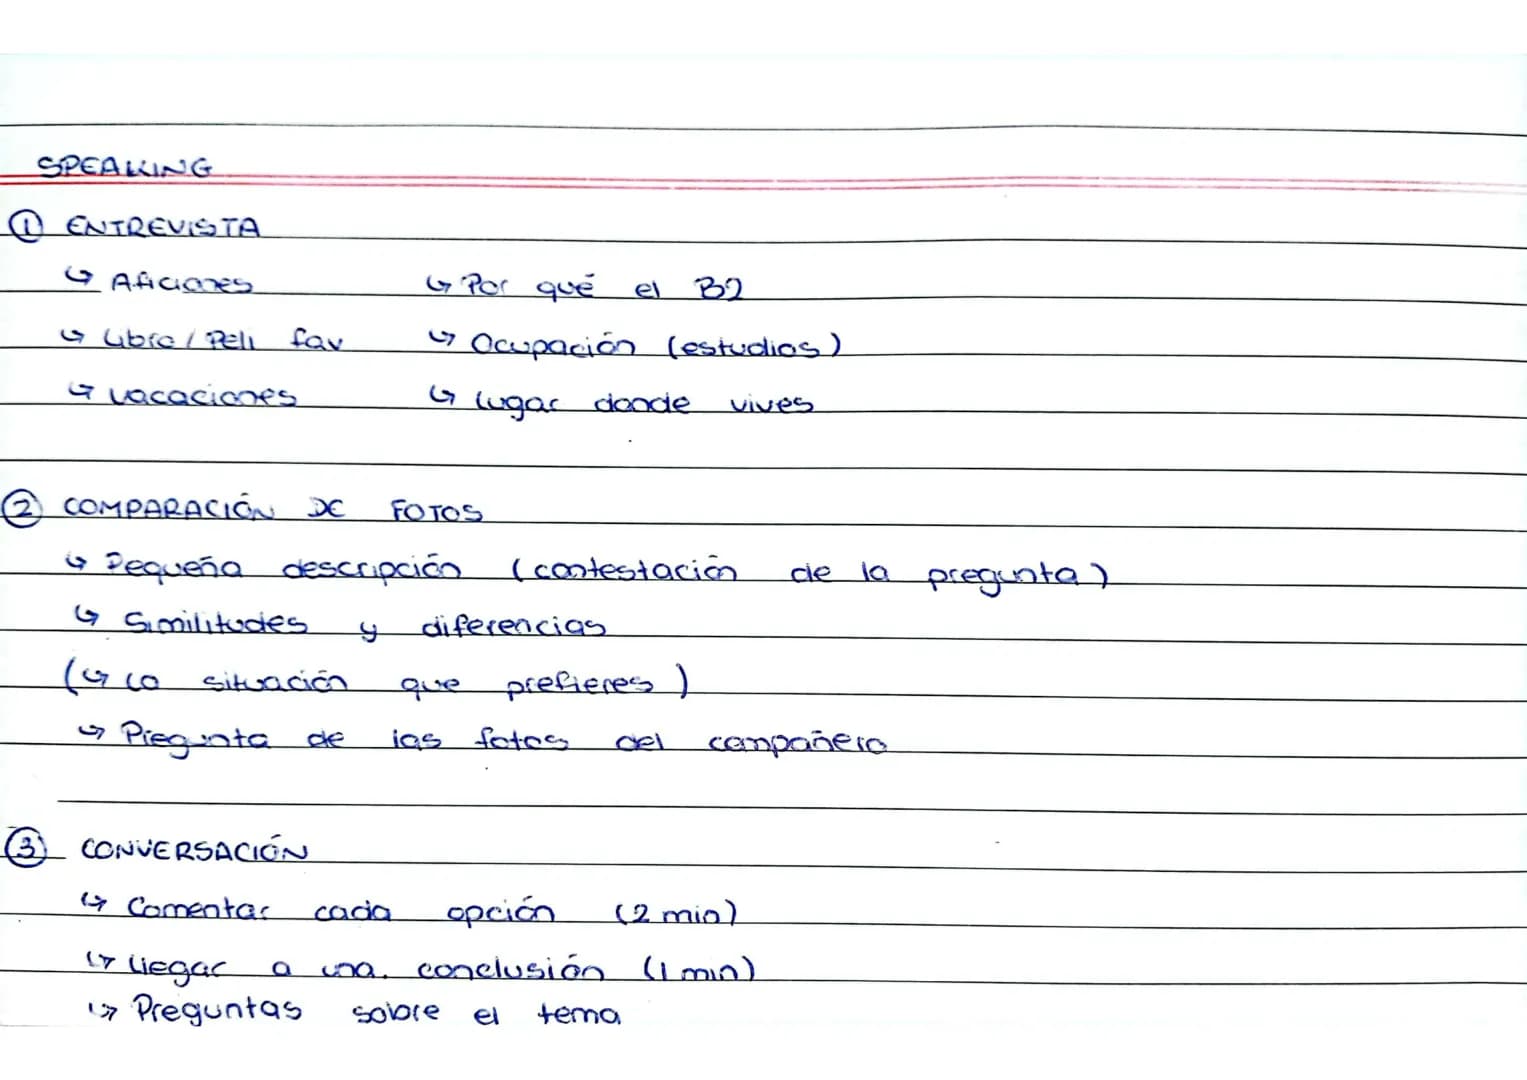 SPEAKING
① ENTREVISTA
↳ Aficiones ↳ Por qué el B2
↳ Libro / Peli fav ↳ Ocupación (estudios)
↳ vacaciones ↳ lugar donde vives
② COMPARACIÓN DE FOTOS
↳ Pequeña descripción (contestación de la pregunta)
↳ Similitudes y diferencias
(↳ La situación que prefieres)
↳ Pregunta de las fotos del compañero
③ CONVERSACIÓN
↳ Comentar cada opción (2 min)
↳ Llegar a una conclusión (1 min)
↳ Preguntas sobre el tema